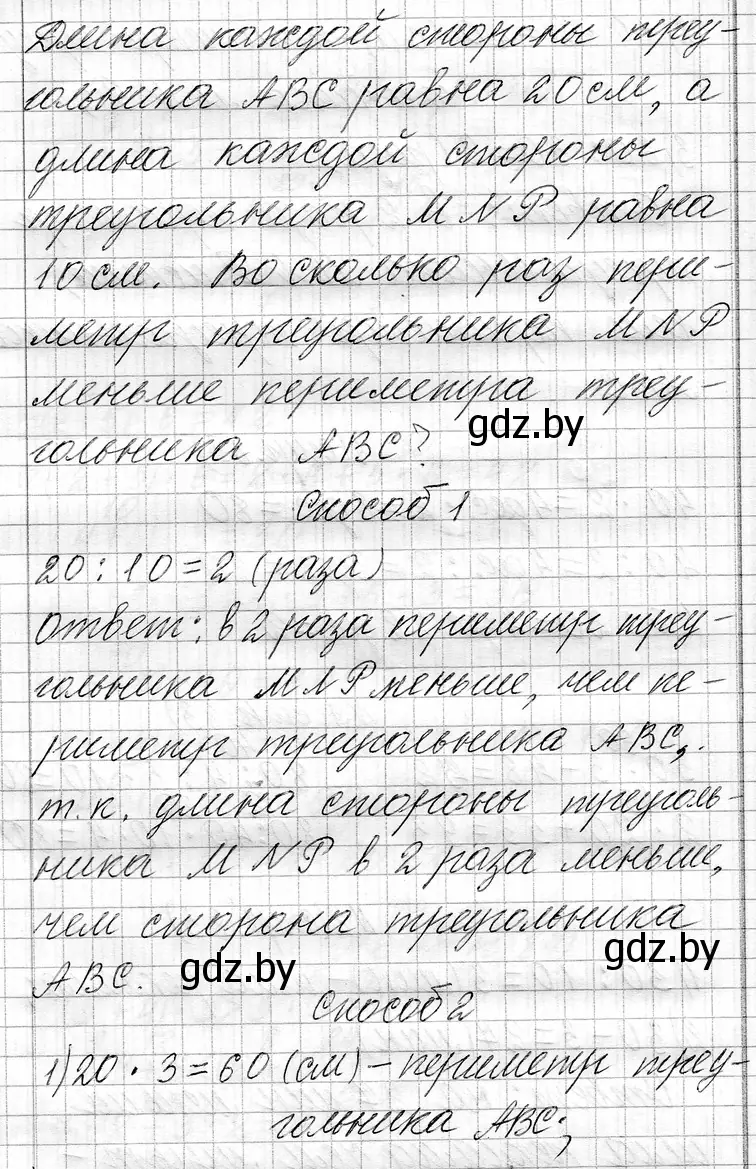 Длина каждой стороны треу-
гольника ABC равна 20 см, а
длина каждой стороны
треугольника MNP равна
10 см. Во сколько раз пери-
метр треугольника MNP
меньше периметра треу-
гольника ABC?
gdz.by
Способ 1
20 : 10 = 2 (раза)
Ответ: в 2 раза периметр треу-
гольника MNP меньше, чем пе-
риметр треугольника ABC,
т.к. длина стороны треуголь-
ника MNP в 2 раза меньше,
чем сторона треугольника
ABC.
gdz.by
gdz.by
Способ 2
1) 20 · 3 = 60 (см) – периметр треу-
гольника ABC;